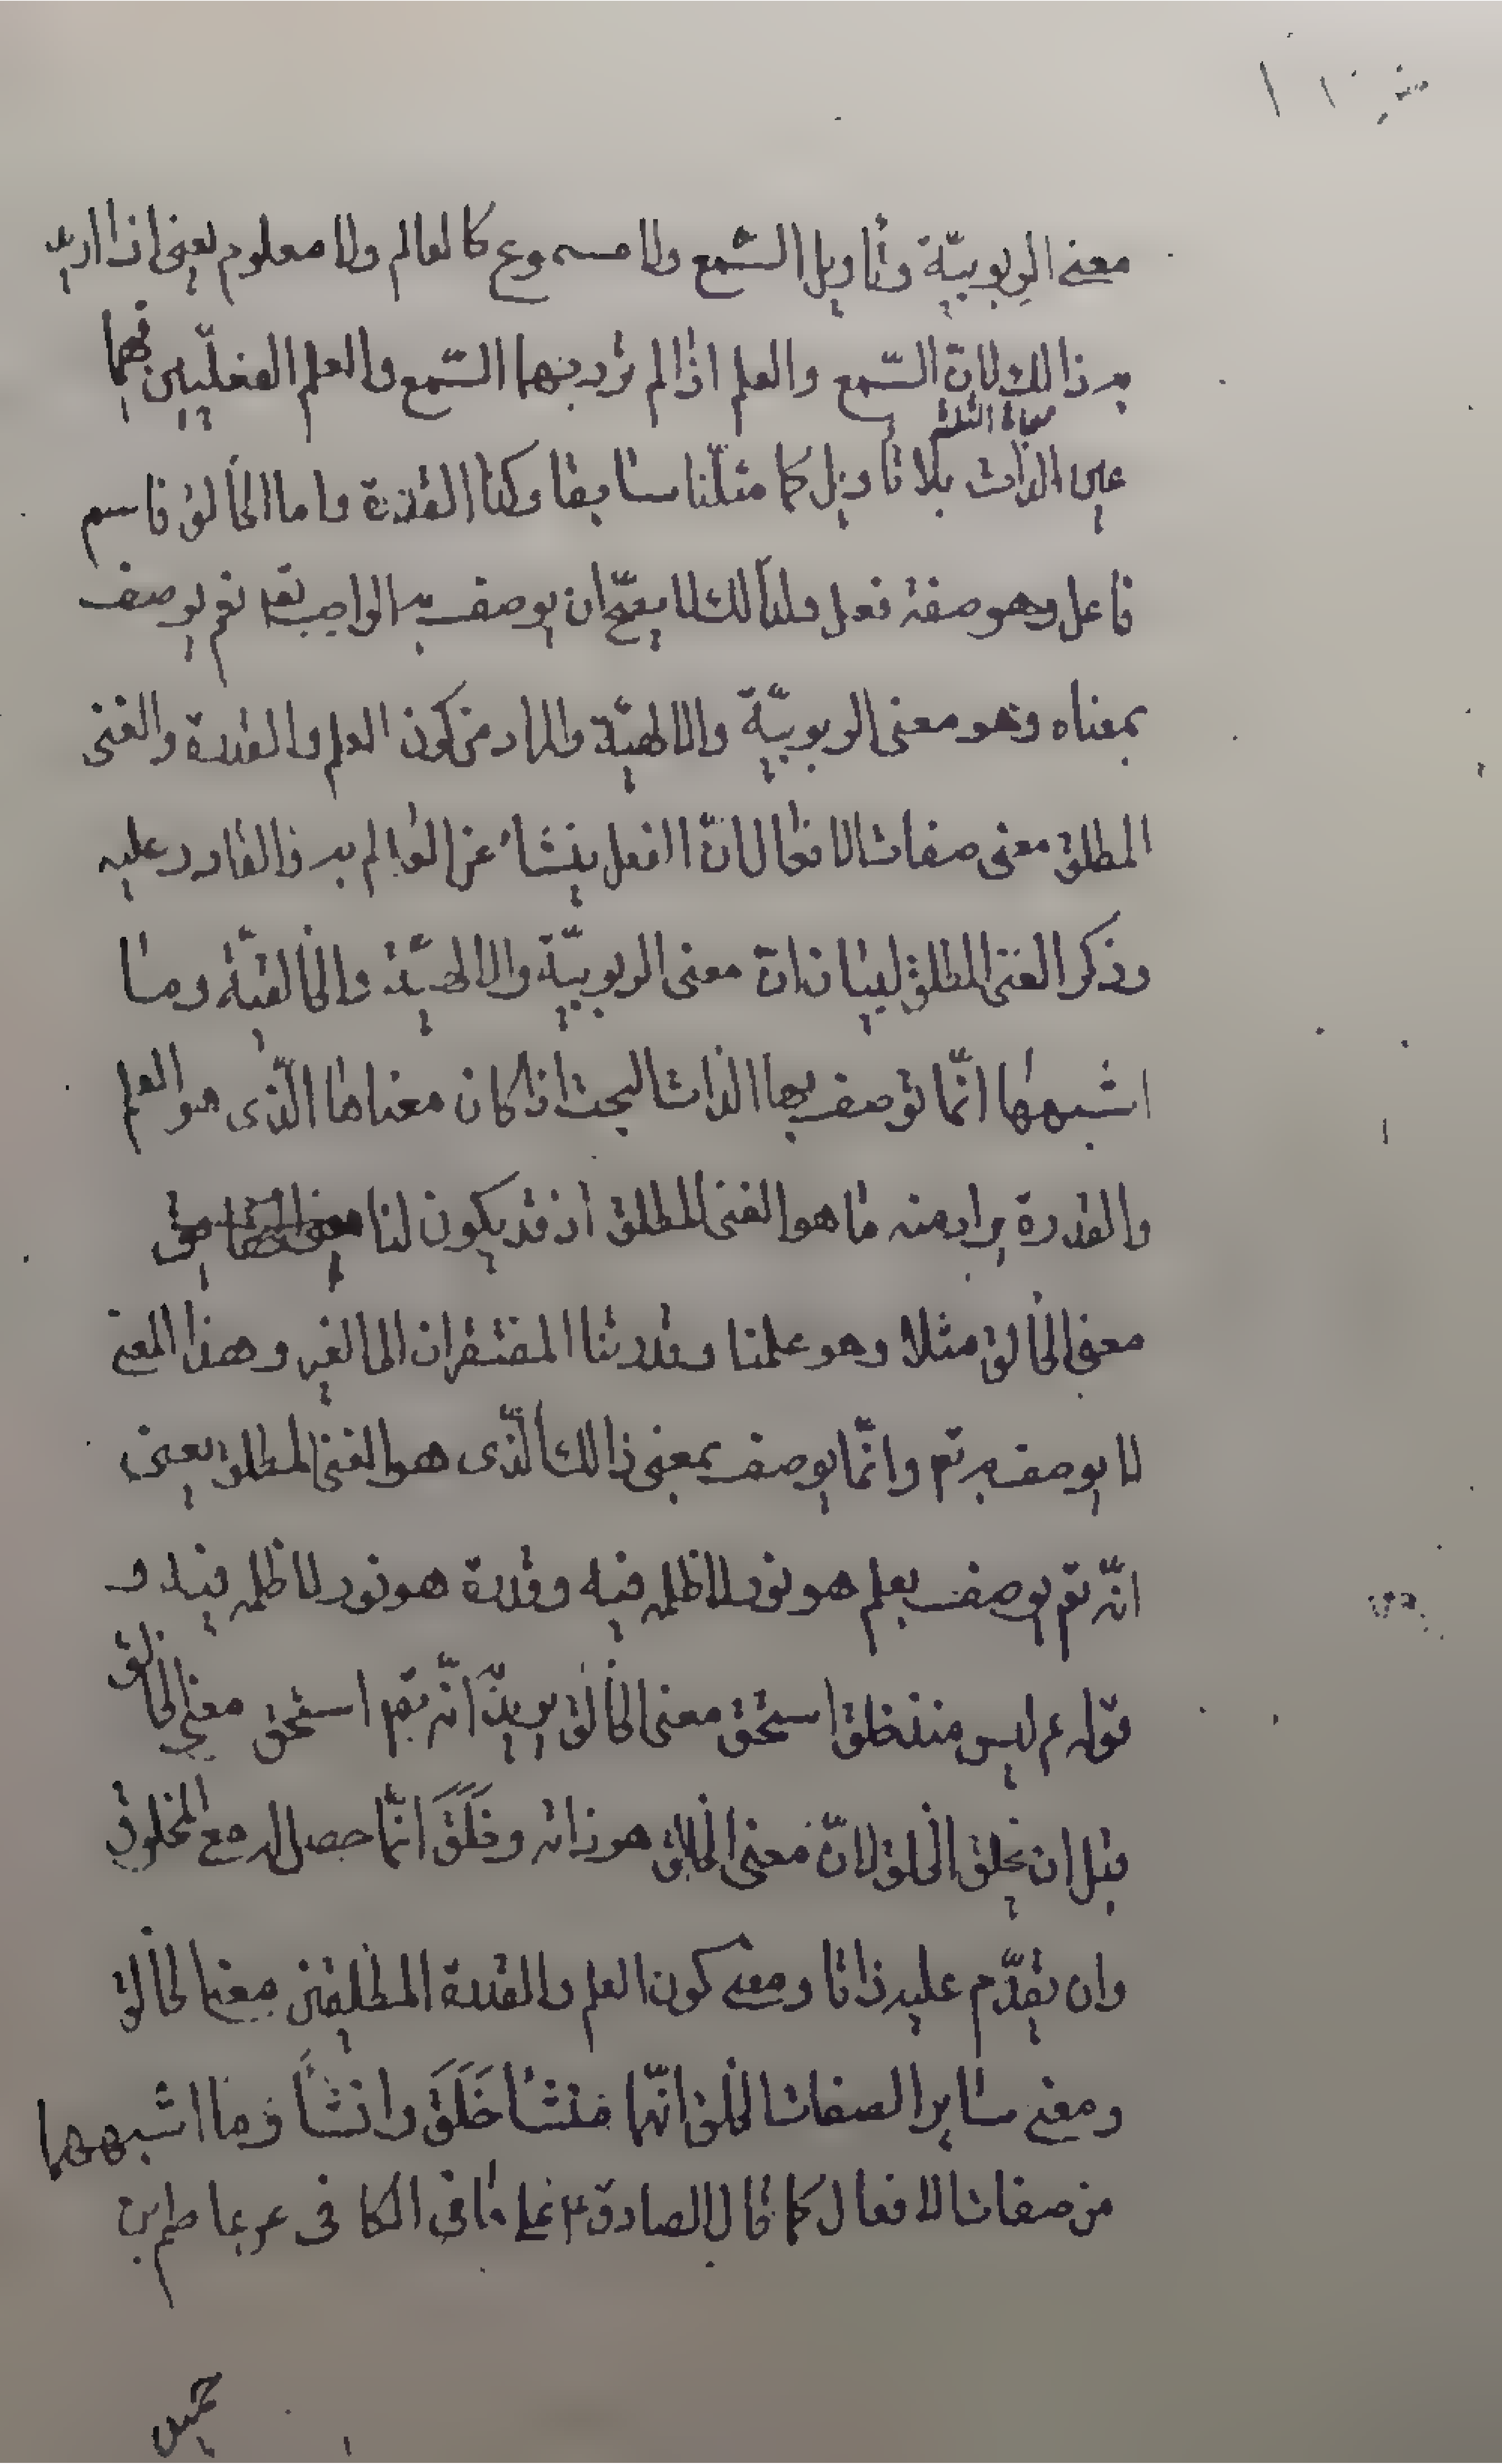 معنى الربوبيّة وتأويل السّمع ولا مسموع كالعالم ولا معلوم يعنى اذا اريد
به ذالك لانّ السّمع والعلم اذا لم ترد بهما السّمع والعلم الفعليين فهما
عين الذات بلا تأويل كما مثّلنا سابقا وكذا القدرة واما الخالق فاسم
فاعل وهو صفة فعل ولذالك لا يصّح ان يوصف به الواجب تعا نعم يوصف
بمعناه وهو معنى الربوبيّة والالهيّة والمراد من كون العلم والقدرة والغنى
المطلق معنى صفات الافعال انّ الفعل ينشأ عن العالم به والقادر عليه
وذكر الغنى المطلق لبيان ان معنى الربوبيّة والالهيّة والخالقيّة وما
اشبهها انّما توصف بها الذات البحت اذا كان معناها الّذى هو العلم
والقدرة يراد منه ما هو الغنى المطلق اذ قد يكون لنا
معنى الخالق مثلا وهو علمنا وقدرتنا المفتقران الى الغير وهذا المعنى
لا يوصف به تع وانّما يوصف بمعنى ذالك الّذى هو الغنى المطلق يعنى
انّه تع يوصف بعلم هو نور لا ظلمة فيه وقدرة هو نور لا ظلمة فيه و
قوله ع ليس منذ خلق استحق معنى الخالق يريد انّه تع استحق معنى الخالق
قبل ان يخلق الخلق لانّ معنى الخالق هو ذاته وخَلَقَ انّما حصل له مع المخلوق
وان تقدّم عليه ذاتا ومعنى كون العلم والقدرة المطلقين معنى الخالق
ومعنى ساير الصفات الخلق انّهما منشأ خَلَقَ وانشأَ وما اشبههما
من صفات الافعال كما قال الصادق ع على ما فى الكافى عن عاصم بن
حميد